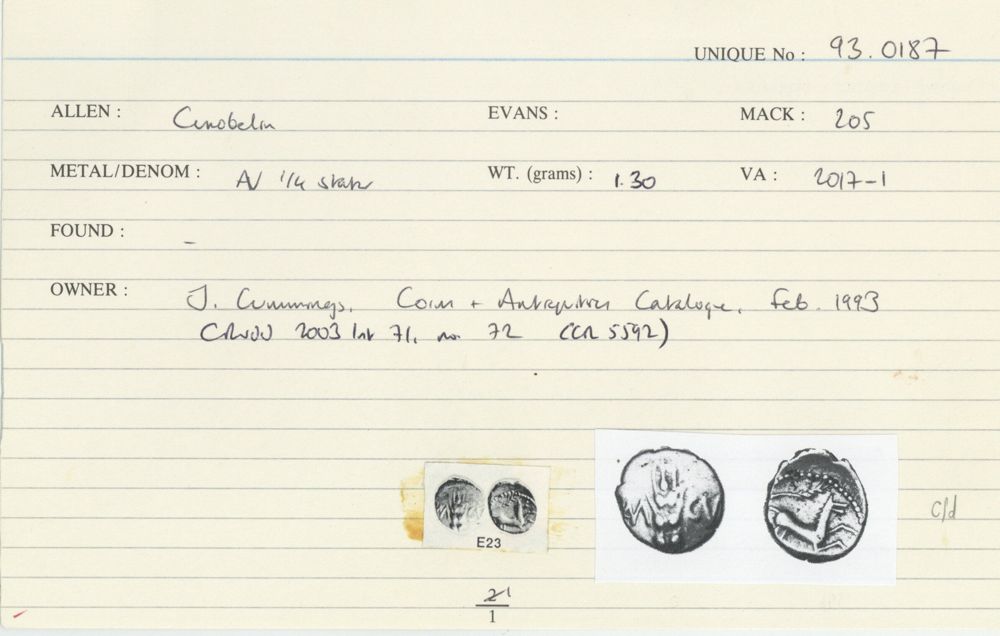 UNIQUE No : 93.0187
ALLEN : Cunobelin EVANS : MACK : 205
METAL/DENOM : A/ 1/4 stater WT. (grams) : 1.30 VA : 2017-1
FOUND : –
OWNER : J. Cummings, Coin + Antiquities Catalogue, Feb. 1993
2003 71, no. 72 (CCR 5592)
E23
c/d
1